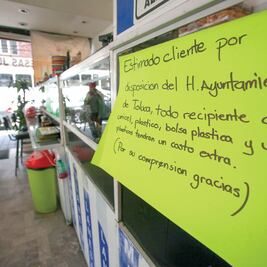 Estimado cliente por
disposicion del H. Ayuntamie
de Toluca, todo recipiente d
unicel, plastico, bolsa plastica y u
plasticos tendran un costo extra.
(Por su comprension gracias)